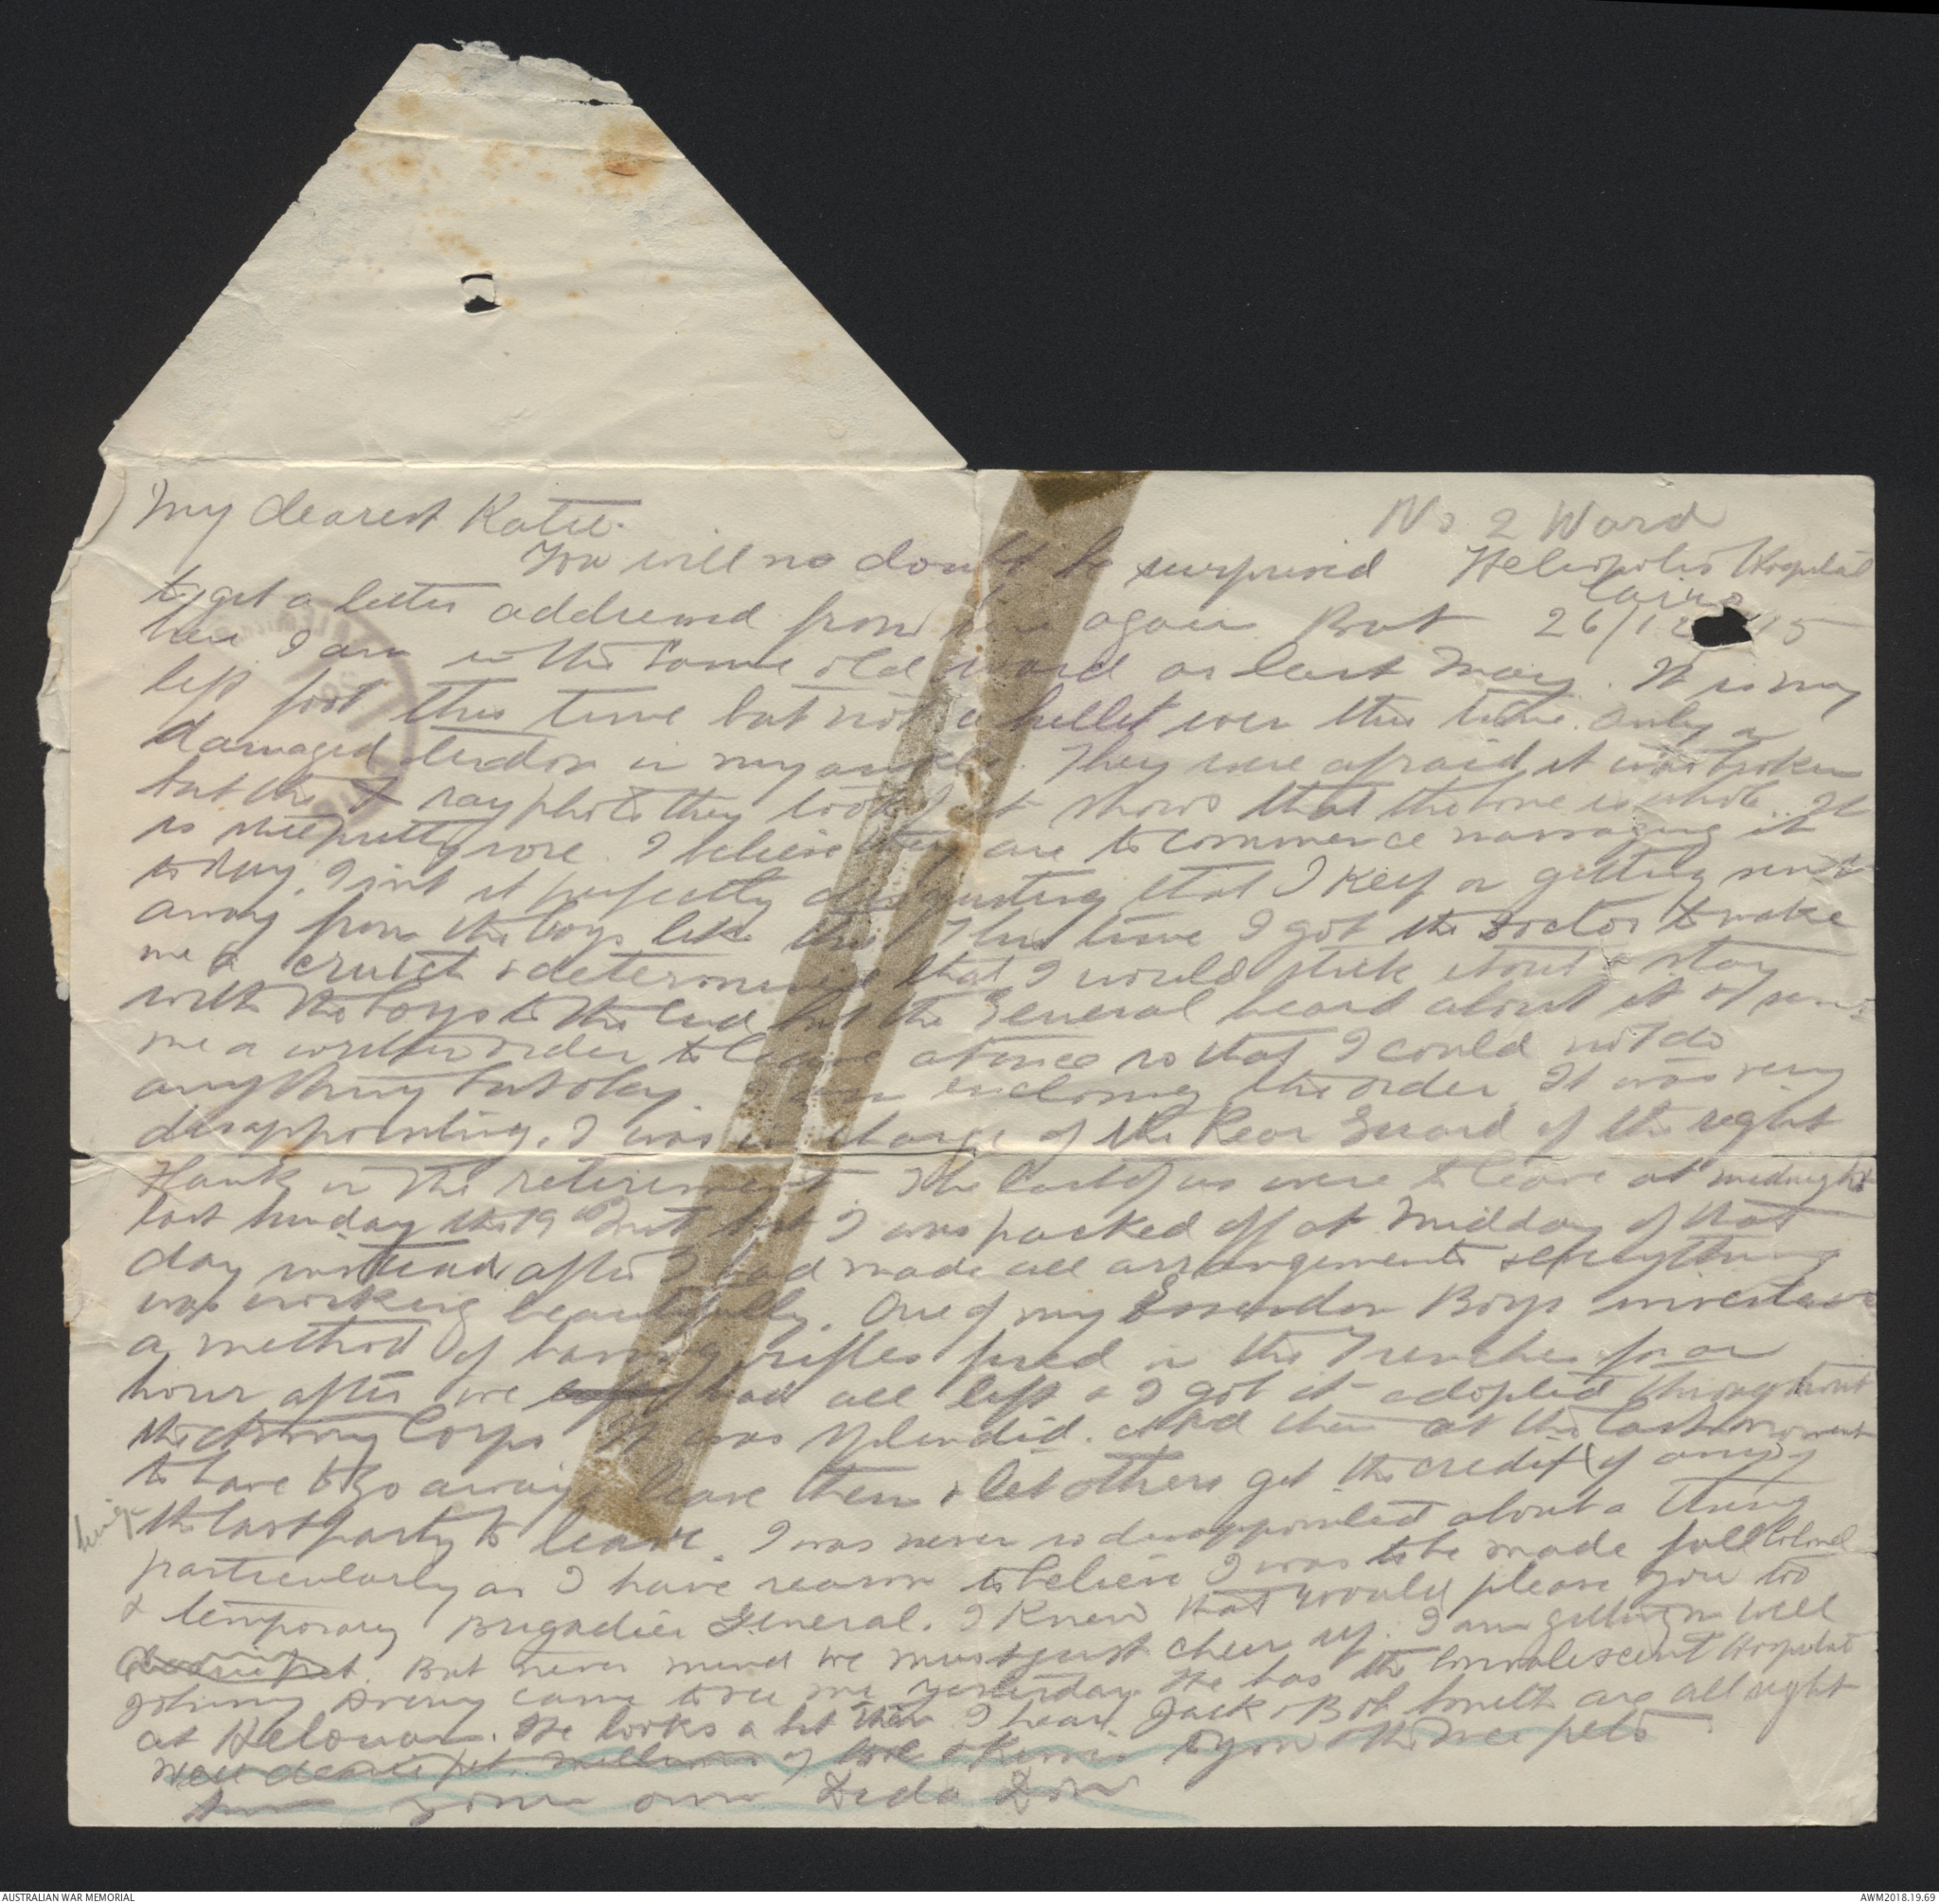 My dearest Katie.
No 2 Ward
Heliopolis Hospital
Cairo
26/12/15
You will no doubt be surprised
to get a letter addressed from here again But
here I am in the same old ward as last May. It is my
left foot this time but not a bullet even this time. Only a
damaged tendon in my ankle. They were afraid it was broken
but the X ray photo they took of it shows that the bone is whole. It
is still pretty sore. I believe they are to commence massaging it
today. Isint it perfectly disgusting that I keep on getting sent
away from the boys like this. This time I got the Doctor to make
me a crutch & determined that I would stick it out & stay
with the boys to the end but the General heard about it & sent
me a written order to leave at once so that I could not do
anything but obey. I am enclosing the order. It was very
disappointing. I was in charge of the Rear Guard of the right
Flank in the retirement. The last of us were to leave at midnight
last Sunday the 19th Inst but I was packed off at Midday of that
day instead after I had made all arrangements & everything
was working beautifully. One of my Essendon Boys invented
a method of having rifles fired in the Trenches for an
hour after we had all left & I got it adopted throughout
the Army Corps It was splendid. And then at the last moment
to have to go away & leave them & let others get the credit of
being the last party to leave. I was never so disappointed about a thing
particularly as I have reason to believe I was to be made full Colonel
& temporary Brigadier General. I knew that would please you too
dearie pet. But never mind we must just cheer up. I am getting on well
Johnny came to see me yesterday. He has the Convalescent Hospital
at Helouan. He looks a bit thin I hear Jack & Bob Smith are all right
Well dearie pet millions of love & kisses to you & the wee pets
from your own Dida